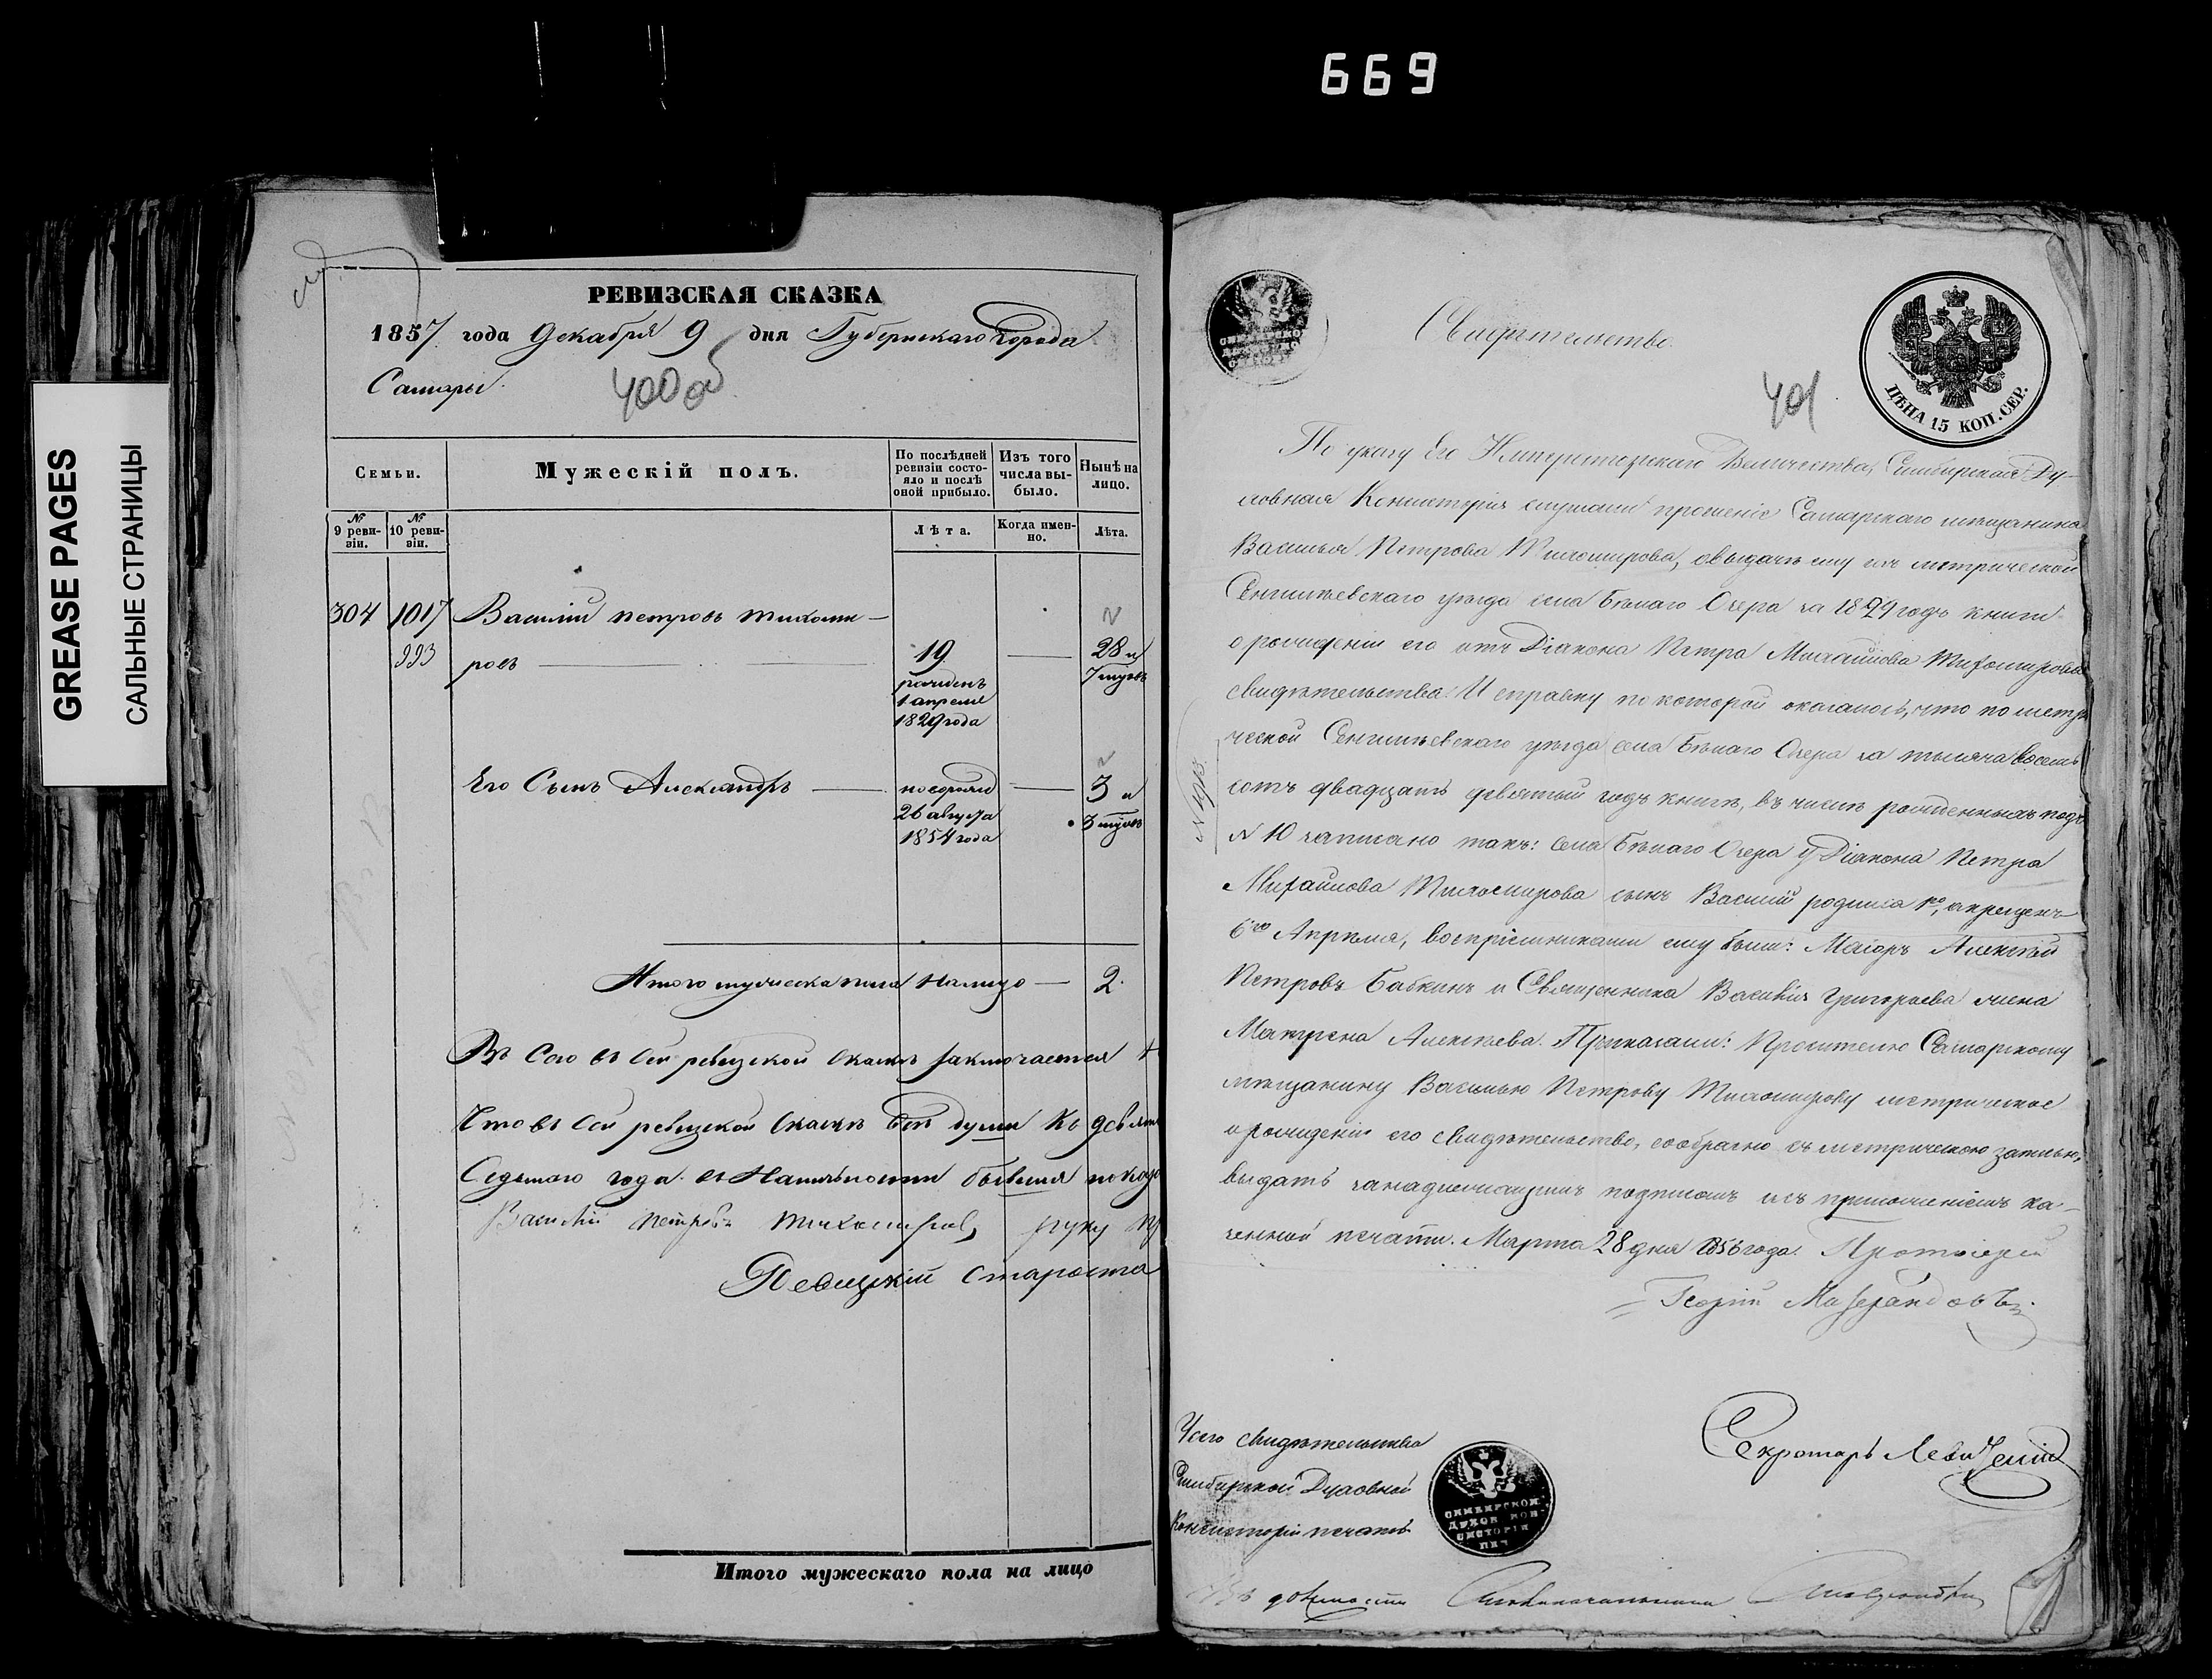 669
GREASE PAGES
САЛЬНЫЕ СТРАНИЦЫ
РЕВИЗСКАЯ СКАЗКА
1857 года Декабря 9 дня Губернскаго Города
Самары
400 об
Семьи.
Мужескій полъ.
По послѣдней ревизіи состояло и послѣ оной прибыло.
Изъ того числа выбыло.
Нынѣ на лицо.
№ 9 ревизіи.
№ 10 ревизіи.
Лѣта.
Когда именно.
Лѣта.
304 1017 Василий петровъ тихоми-
993 ровъ 19 28 и
рожденъ
1 апреля
1829 года
Его Сынъ Александръ 3 и
26 августа
1854 года
Итого мужеска пола налицо — 2.
Что въ сей ревизской сказкѣ всѣ души къ
Седьмого года въ Наличности бывшия
Василий петровъ тихомиров руку
староста
Итого мужескаго пола на лицо
Свидѣтельство.
401
ЦѢНА 15 КОП. СЕР.
По указу Его Императорскаго Величества, Симбирская Ду-
ховная Консисторія слушали прошеніе Самарскаго мѣщанина
Василья Петрова Тихомирова, о выдачѣ ему изъ метрической
Сенгилѣевскаго уѣзда села Бѣлаго Озера за 1829 годъ книги
о рожденіи его отъ Діакона Петра Михайлова Тихомирова
свидѣтельства. И справку по которой оказалось, что по метри-
ческой Сенгилѣевскаго уѣзда села Бѣлаго Озера за тысяча восемь
сотъ двадцать девятый годъ книгѣ, въ числѣ рожденныхъ подъ
№ 10 записано такъ: села Бѣлаго Озера у Діакона Петра
Михайлова Тихомирова сынъ Василій родился 1го, а крещенъ
6го Апрѣля, воспріемниками ему были: Маіоръ Алексѣй
Петровъ Бабкинъ и Священника Василія Григорьева жена
Матрена Алексѣева. Приказали: Просителю Самарскому
мѣщанину Василью Петрову Тихомирову метрическое
о рожденіи его свидѣтельство, сообразно съ метрическою записью,
выдать за надлежащимъ подписомъ и съ приложеніемъ ка-
зенной печати. Марта 28 дня 1856 года. Протоіерей
Георгій
Секретарь
У сего свидѣтельства
Симбирской Духовной
Консисторіи печать
СИМБИРСКОЙ ДУХОВ КОНСИСТОРІИ ПЕЧ
должности Столоначальника